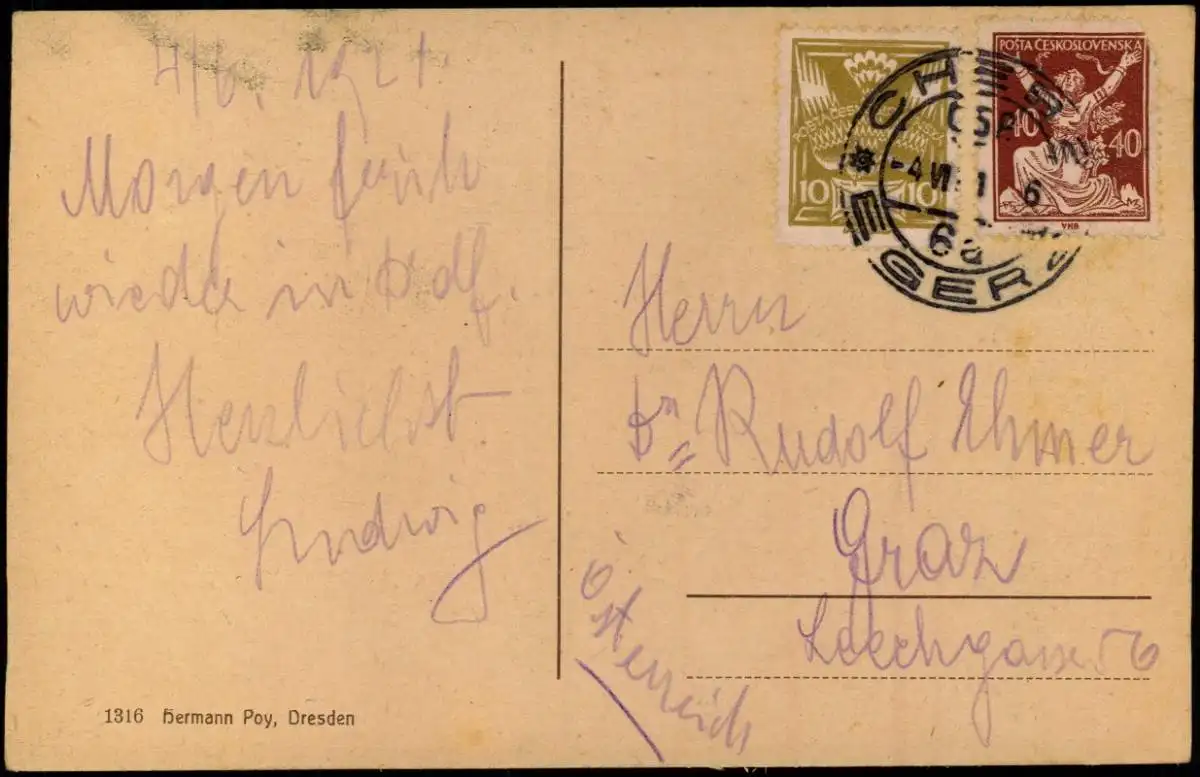 4/6. 1921
Morgen früh
wieder in Ddf.
Herzlichst
Ludwig
1316 Hermann Poy, Dresden
POŠTA ČESKOSLOVENSKÁ
10 10
POŠTA ČESKOSLOVENSKÁ
40 40
CHEB
ČSR
-4 VI 21 6
6a
EGER
Herrn
Dr. Rudolf Ehmer
Graz
Leechgasse 56
Österreich